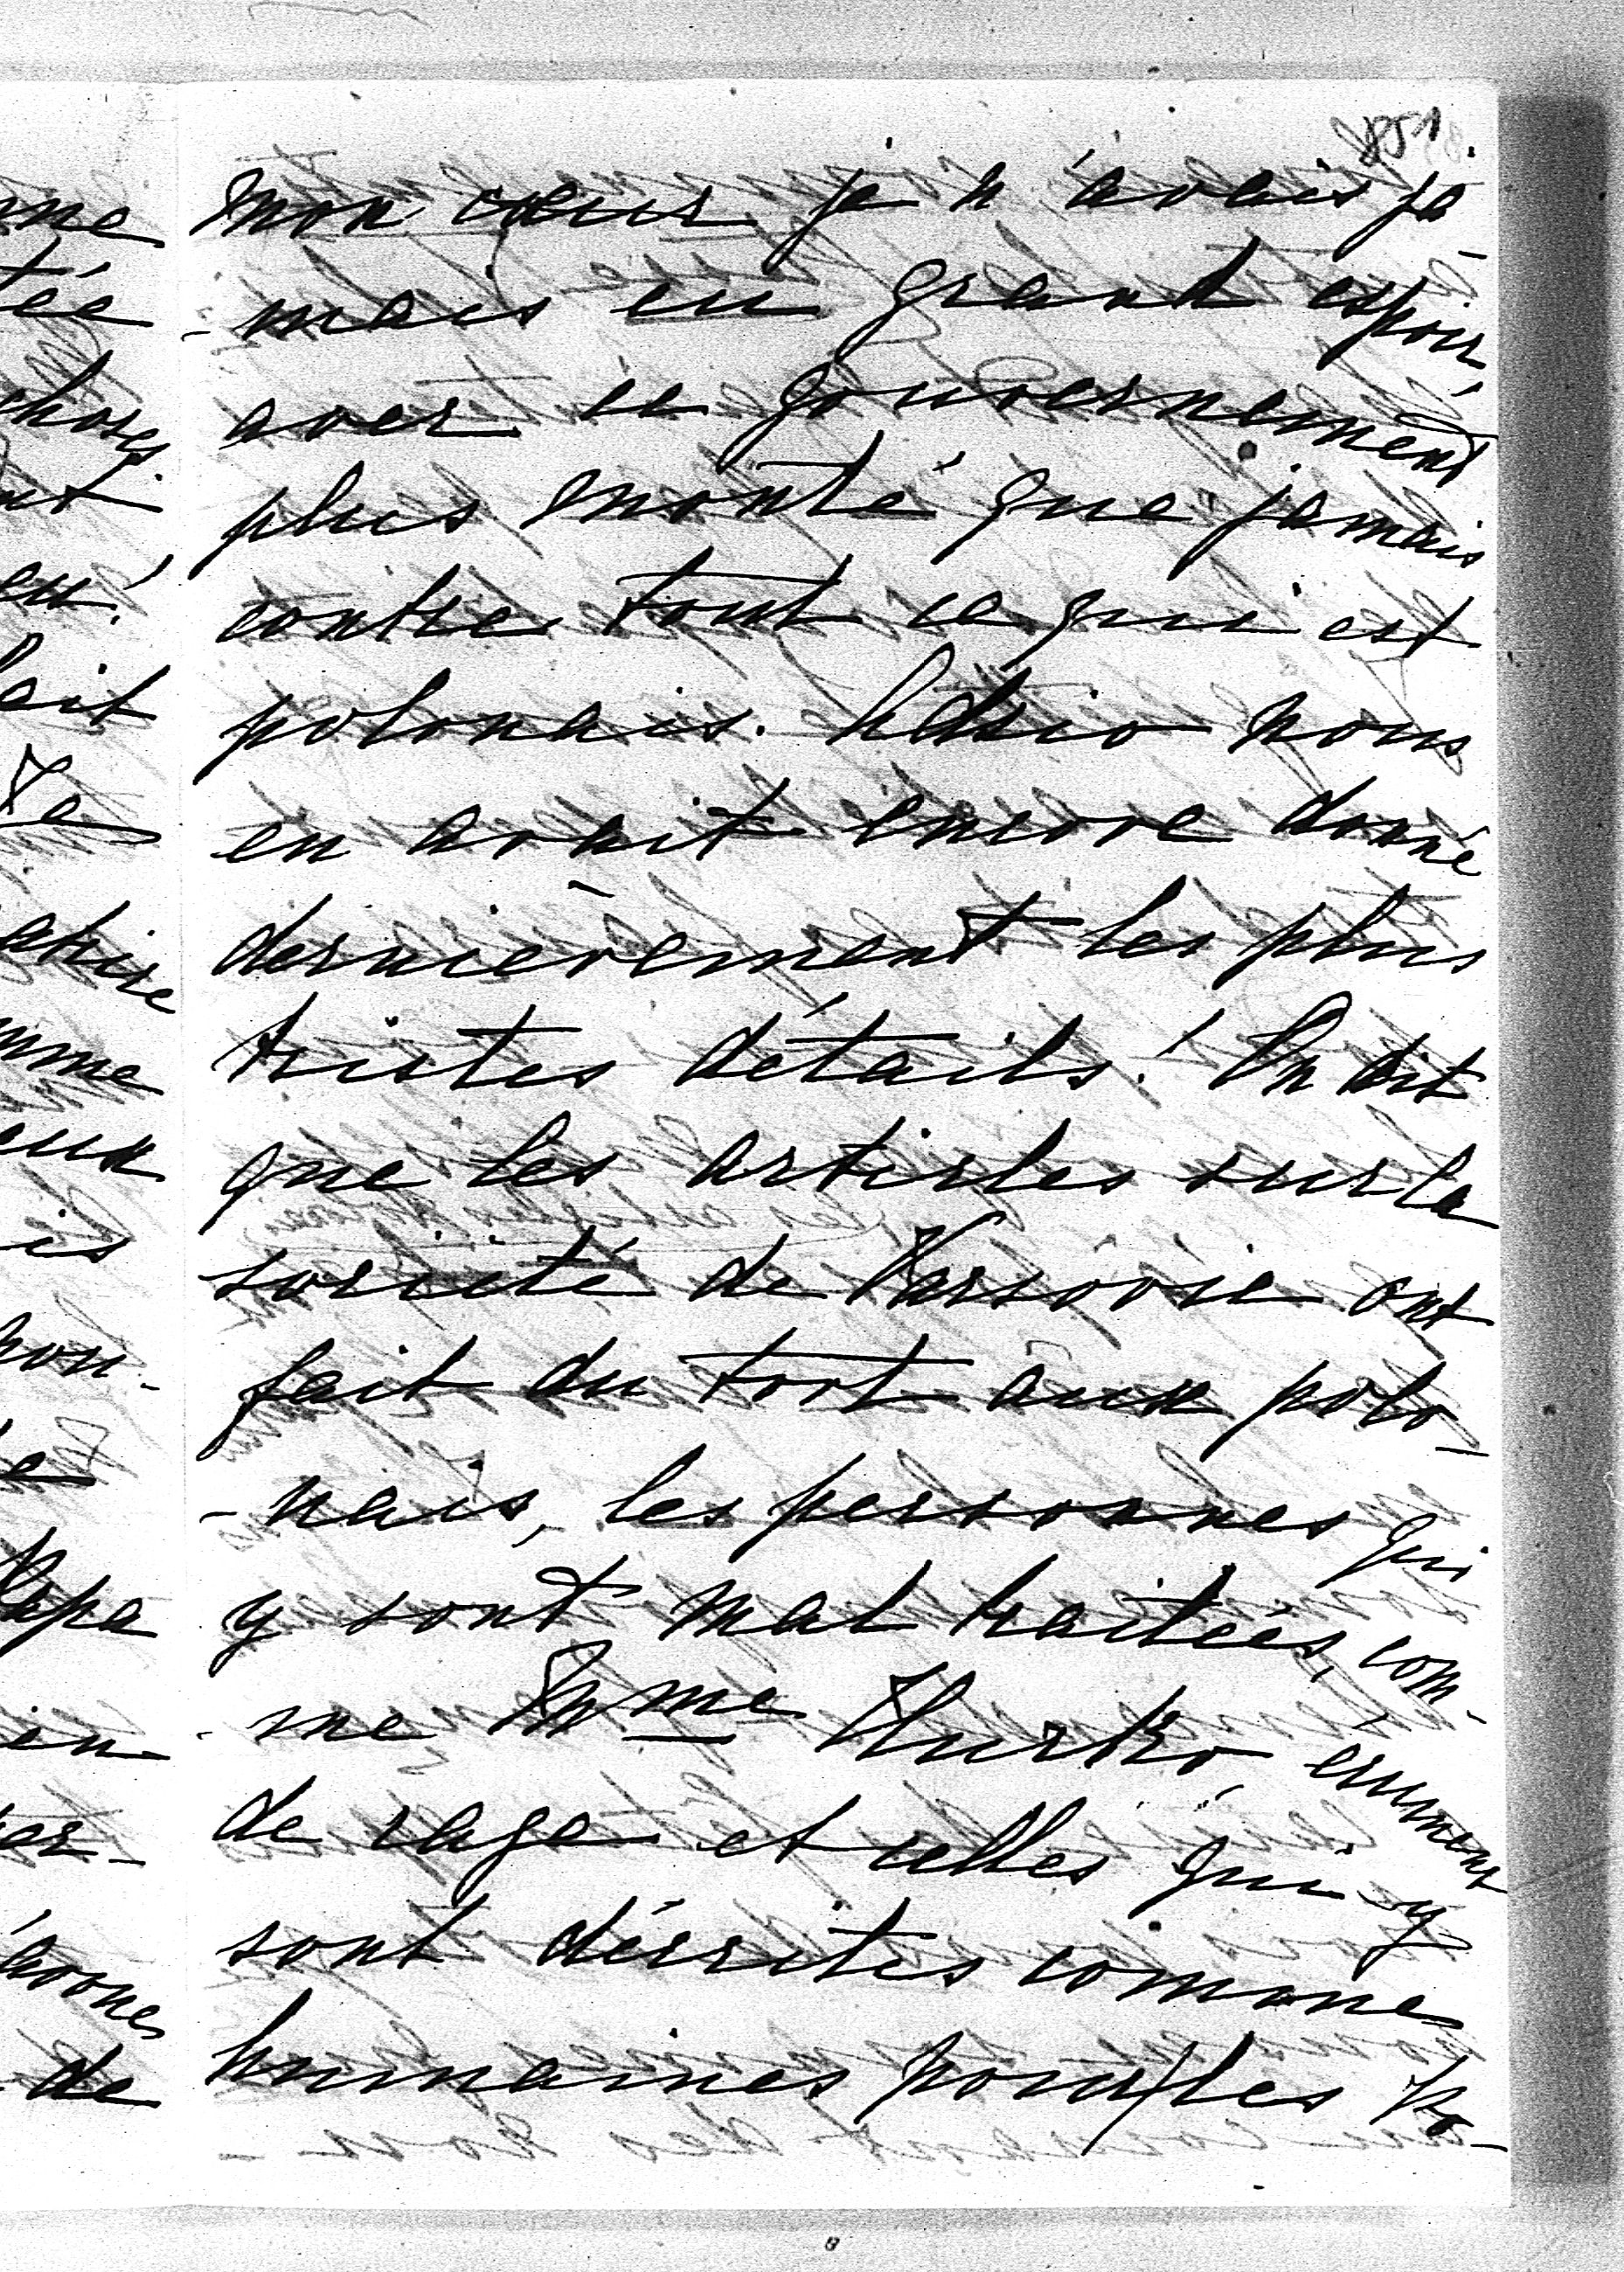 851
mon cœur je n'avais ja-
-mais eu grand espoir,
avec ce gouvernement
plus monté que jamais
contre tout ce qui est
polonais. Adzio nous
en avait encore donné
dernièrement les plus
tristes détails! On dit
que les articles sur la
société de Varsovie ont
fait du tort aux polo-
-nais, les personnes qui
y sont mal traitées, com-
-me Mme Hurko, écument
de rage et celles qui y
sont décrites comme
humaines pour les Po-